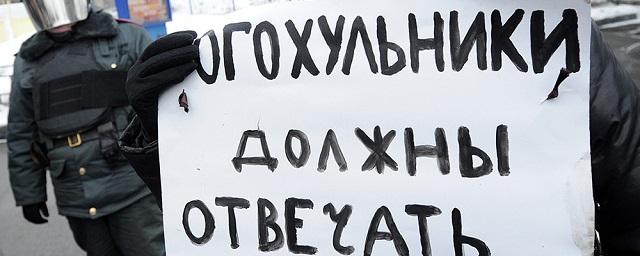 ОГОХУЛЬНИКИ
ДОЛЖНЫ
ОТВЕЧАТЬ